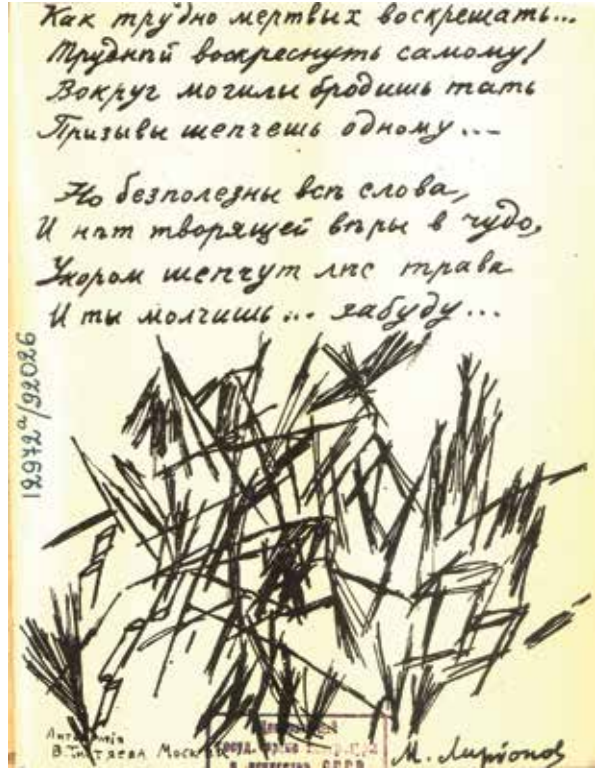 Как трудно мертвых воскрешать...
Труднѣй воскреснуть самому!
Вокруг могилы бродишь тать
Призывы шепчешь одному...
Но безполезны всѣ слова,
И нѣт творящей вѣры в чудо,
Укором шепчут лѣс трава
И ты молчишь... забуду...
12972а/92026
В. Титяева Москва
М. Ларіонов
и искусства СССР